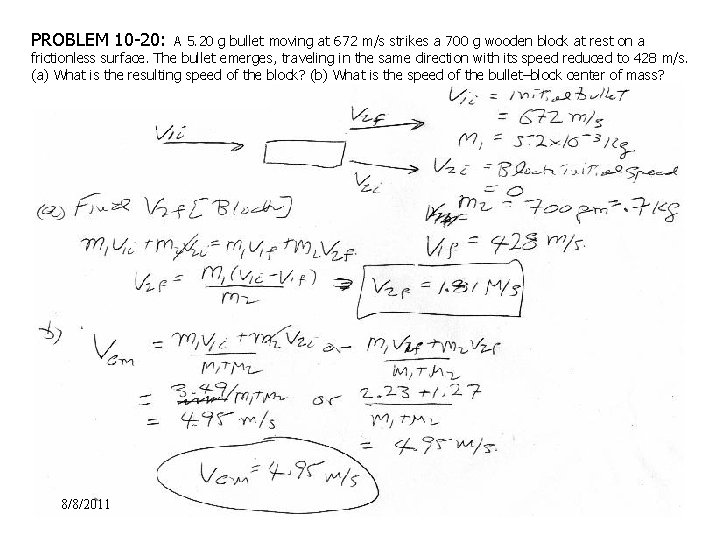 PROBLEM 10-20: A 5.20 g bullet moving at 672 m/s strikes a 700 g wooden block at rest on a
frictionless surface. The bullet emerges, traveling in the same direction with its speed reduced to 428 m/s.
(a) What is the resulting speed of the block? (b) What is the speed of the bullet–block center of mass?
V1i = initial bullet
= 672 m/s
V1i
V2f
M1 = 5.2×10^-3 Kg
V2i
V2i = Block initial speed
= 0
m2 = 700 gm = .7 Kg
(a) Final V2f [Block]
V1f = 428 m/s.
m1V1i + m2V2i = m1V1f + m2V2f
V2f = M1(V1i - V1f) / m2
V2f = 1.81 M/s
b) Vcm = m1V1i + m2V2i / M1+M2 or M1V1f + m2V2f / M1+M2
= 3.49/m1+m2 or 2.23 + 1.27 / m1+m2
= 4.95 m/s
= 4.95 m/s.
Vcm = 4.95 m/s
8/8/2011